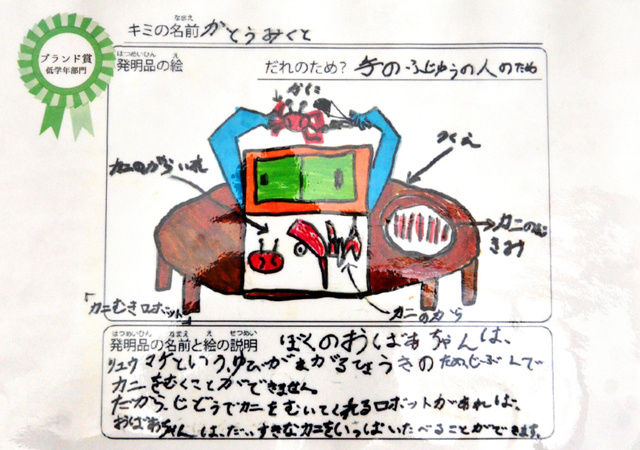 ブランド賞
低学年部門
キミの名前 がとうみくと
なまえ
はつめいひん え
発明品の絵
だれのため? 手のふじゆうの人のため
かに
つくえ
カニのがらいれ
カニのむきみ
カニのがら
「カニむきロボット」
はつめいひん なまえ え せつめい
発明品の名前と絵の説明 ぼくのおばあちゃんは、
リュウマチという、ゆびがまがるびょうきのためじぶんで
カニをむくことができません。
だから、じどうでカニをむいてくれるロボットがあれば、
おばあちゃんは、だいすきなカニをいっぱいたべることができます。